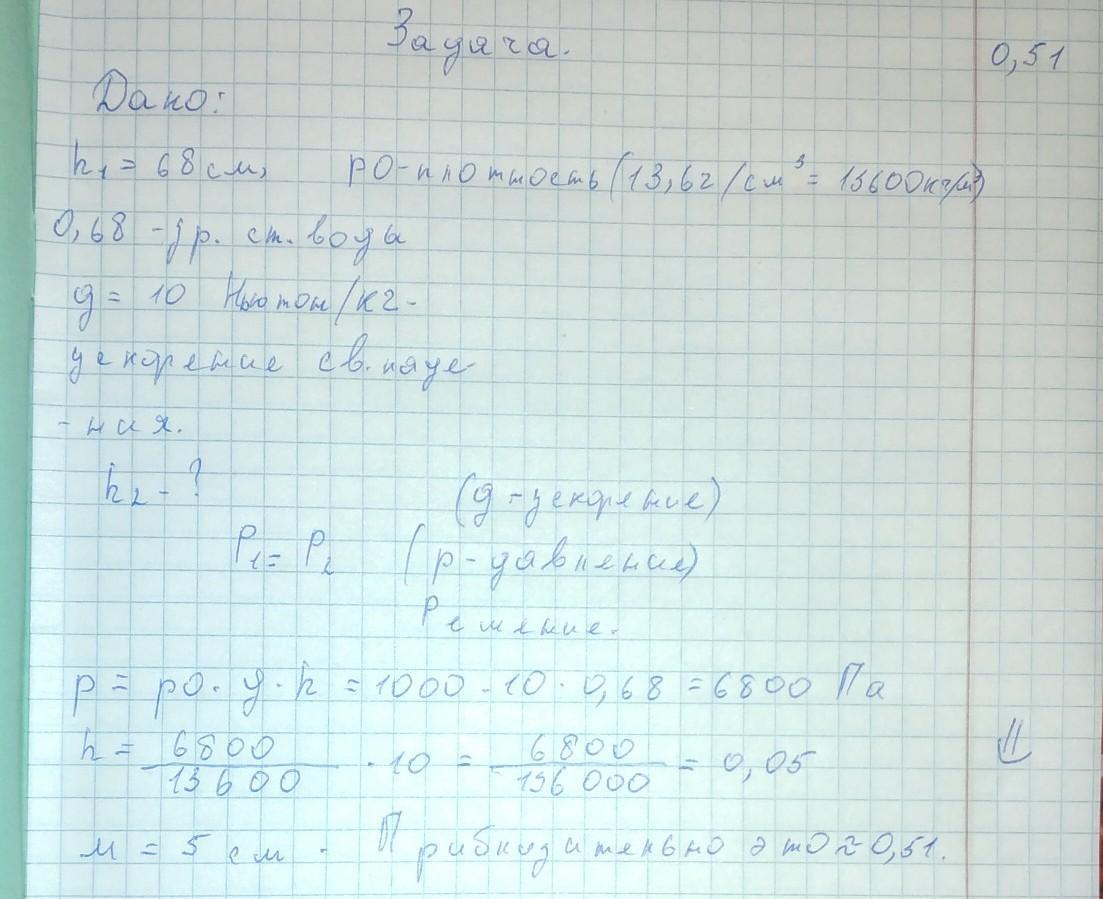 Задача.
0,51
Дано:
h₁ = 68 см, ро-плотность (13,6г/см³ = 13600кг/м³)
0,68 - гр. ст. воды
g = 10 Ньютон/кг -
ускорение св. паде-
- ния.
h₂ - ?
(g - ускорение)
P₁ = P₂ (p - давление)
Решение.
p = ро · g · h = 1000 · 10 · 0,68 = 6800 Па
h = 6800/13600 · 10 = 6800/136000 = 0,05
м = 5 см. Приблизительно это ≈ 0,51.